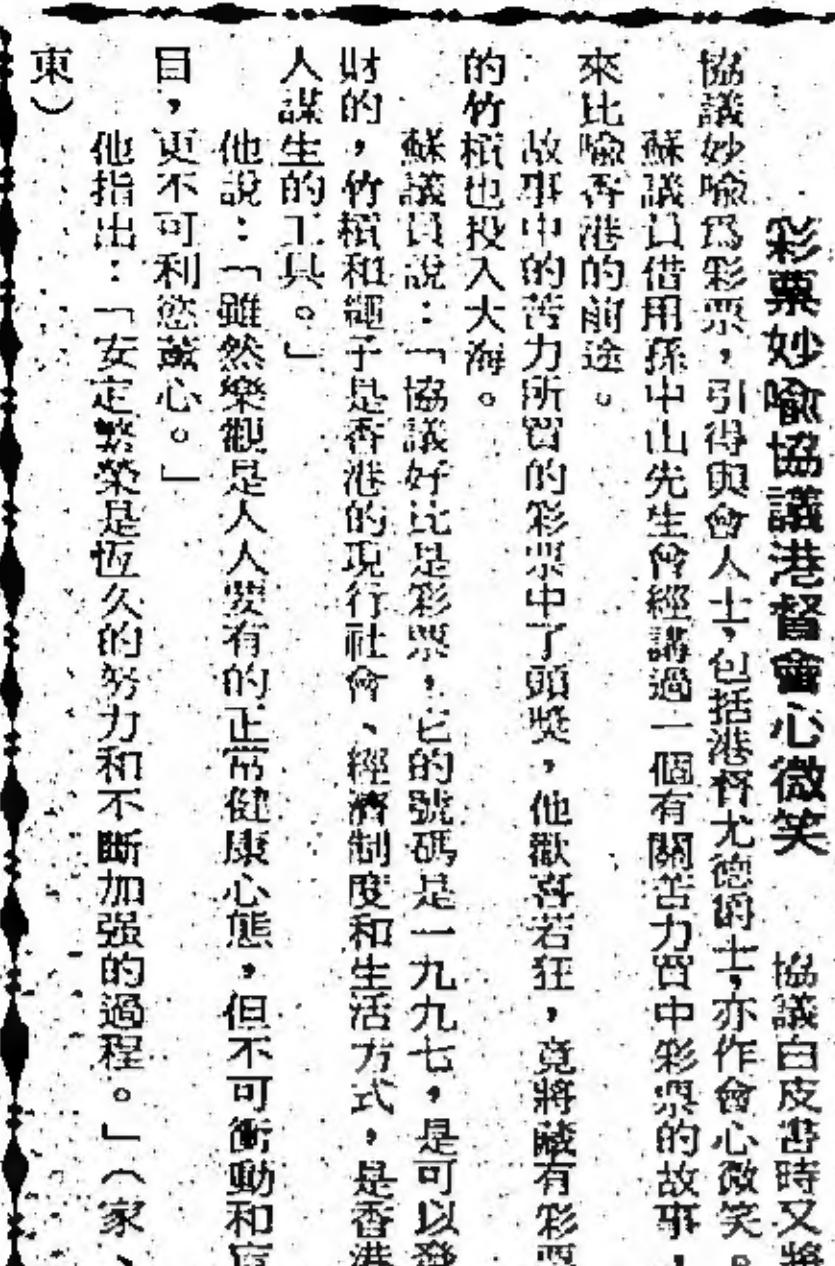 彩票妙喻協議港督會心微笑　協議白皮書時又將
協議妙喻爲彩票，引得與會人士，包括港督尤德爵士，亦作會心微笑。
蘇議員借用孫中山先生曾經講過一個有關苦力買中彩票的故事，
來比喻香港的前途。
故事中的苦力所買的彩票中了頭獎，他歡喜若狂，竟將藏有彩票
的竹槓也投入大海。
蘇議員說：「協議好比是彩票，它的號碼是一九九七，是可以發
財的，竹槓和繩子是香港的現行社會、經濟制度和生活方式，是香港
人謀生的工具。」
他說：「雖然樂觀是人人要有的正常健康心態，但不可衝動和盲
目，更不可利慾薰心。」
他指出：「安定繁榮是恆久的努力和不斷加强的過程。」（家、
東）